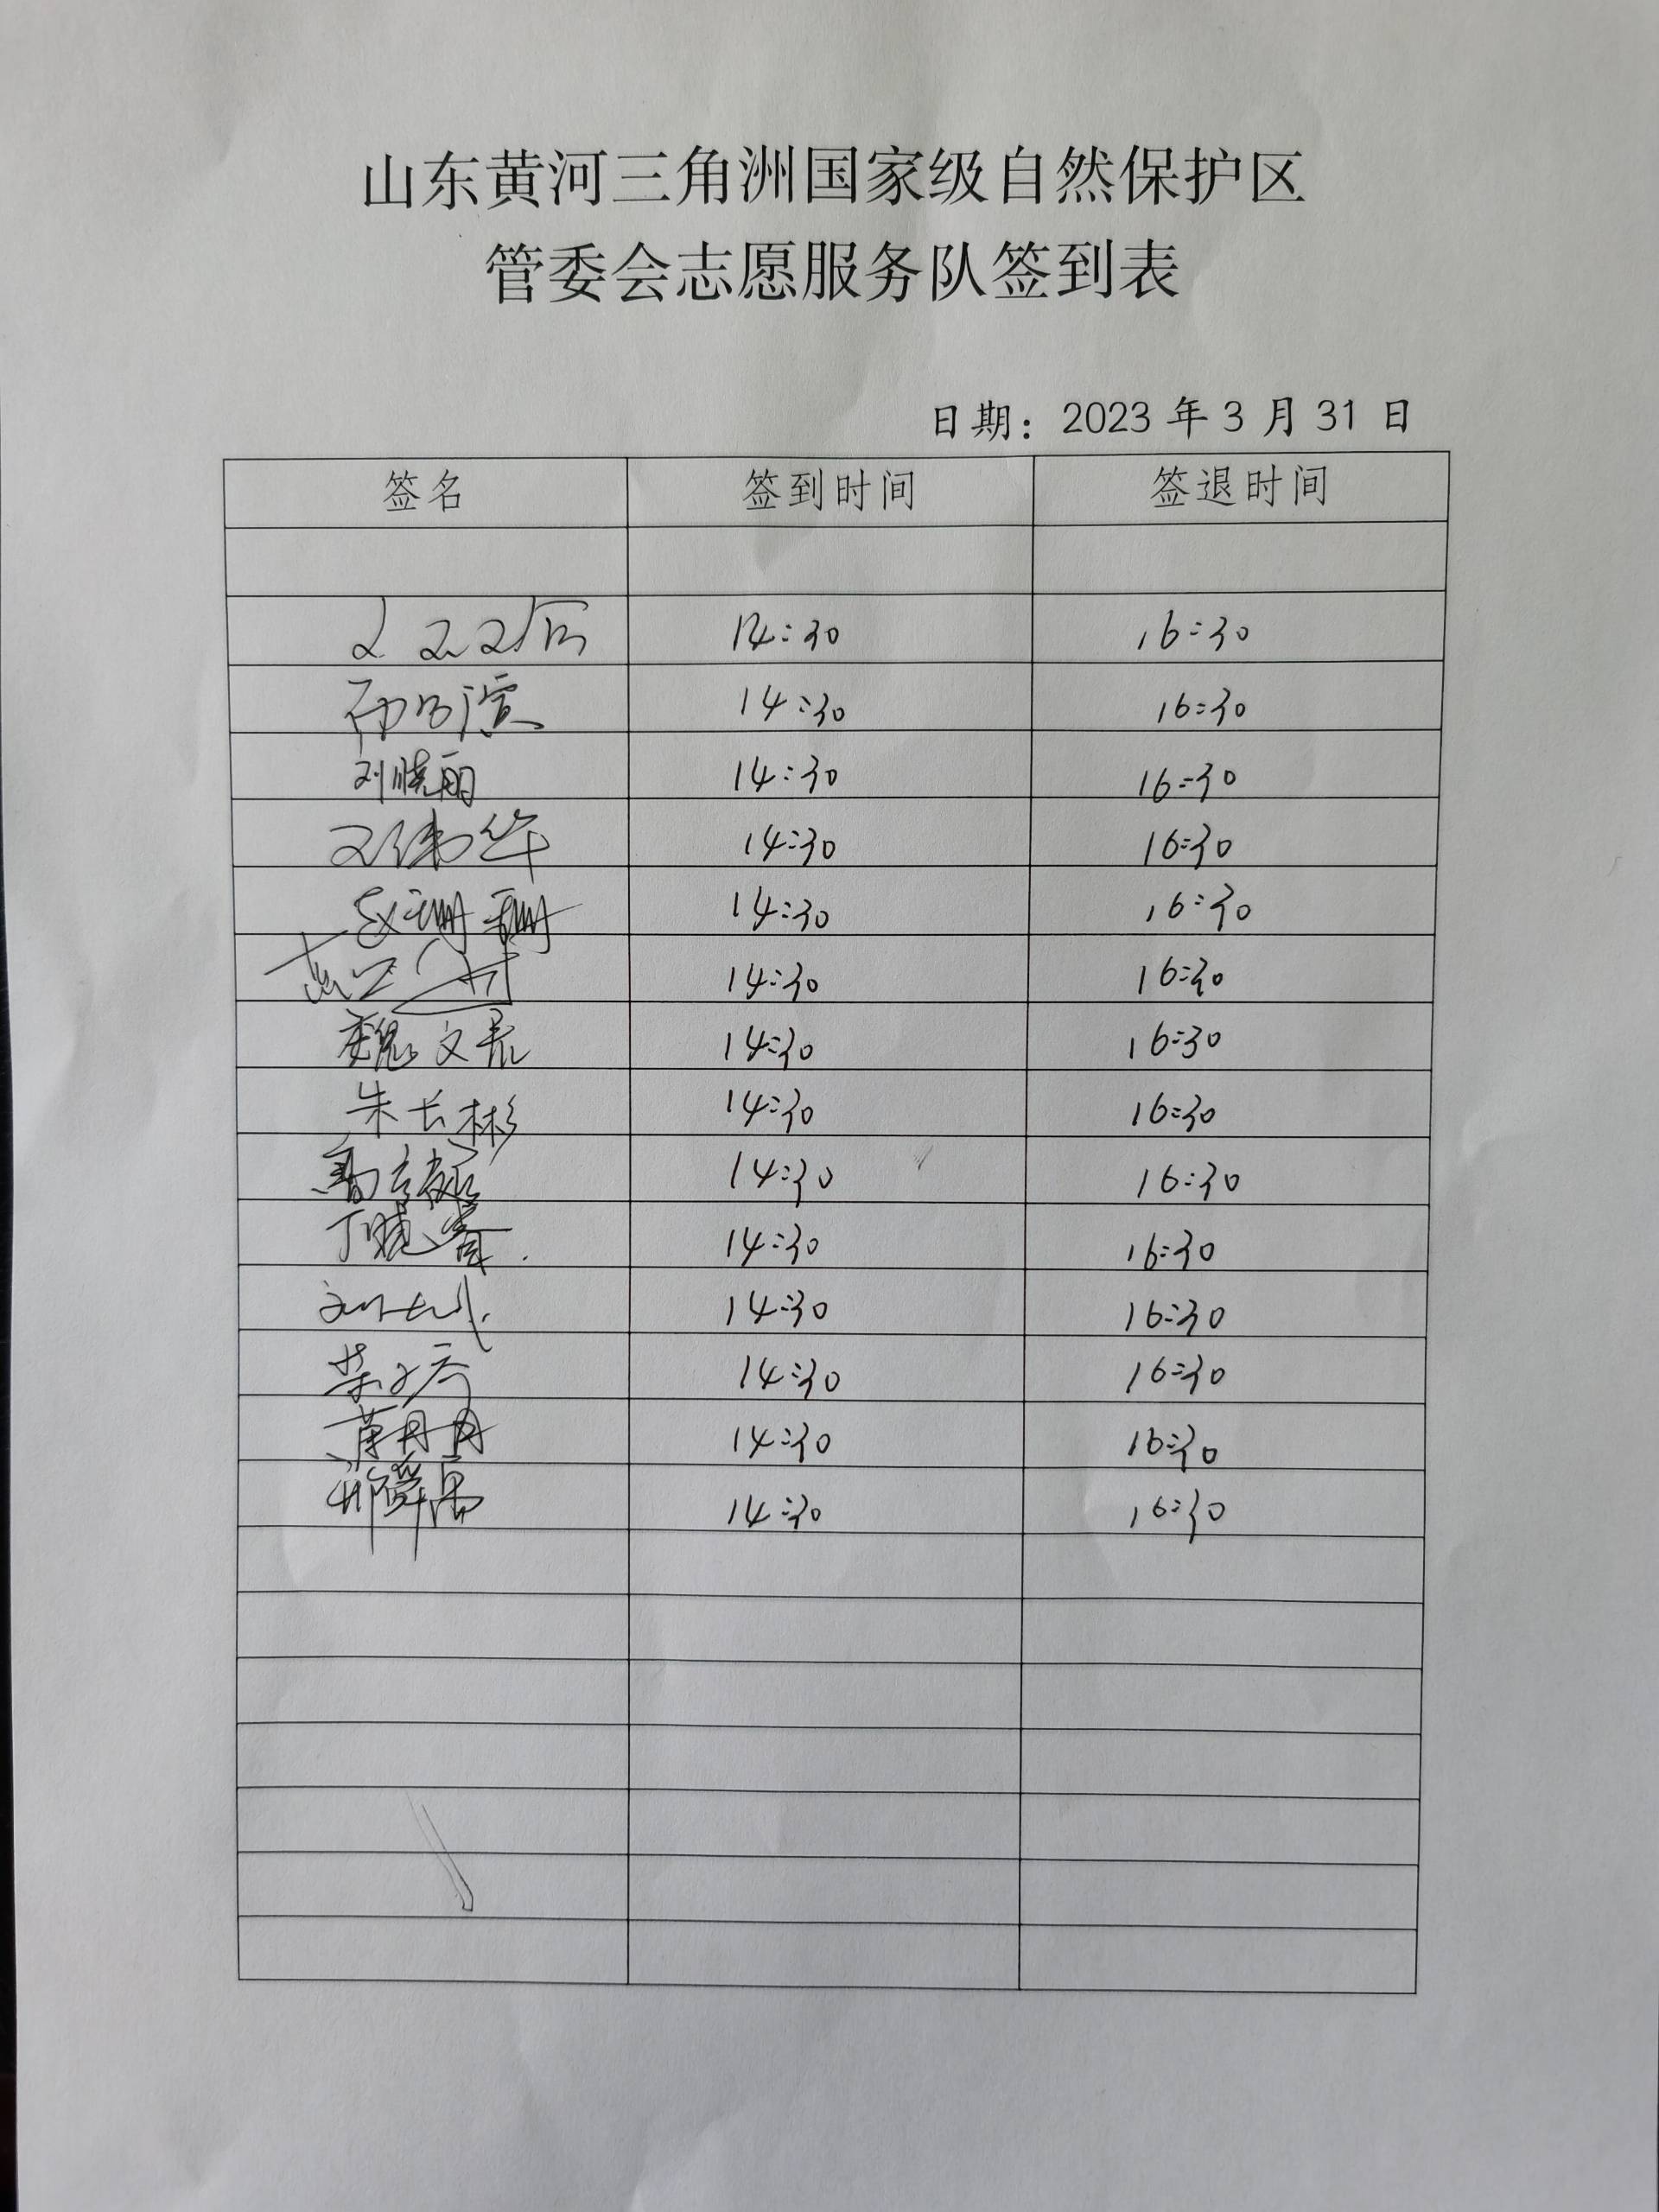 山东黄河三角洲国家级自然保护区
管委会志愿服务队签到表
日期：2023年3月31日
签名 签到时间 签退时间
14:30 16:30
14:30 16:30
刘晓丽 14:30 16:30
14:30 16:30
赵珊珊 14:30 16:30
14:30 16:30
魏文晁 14:30 16:30
朱长彬 14:30 16:30
14:30 16:30
丁晓 14:30 16:30
14:30 16:30
14:30 16:30
黄丹丹 14:30 16:30
14:30 16:30